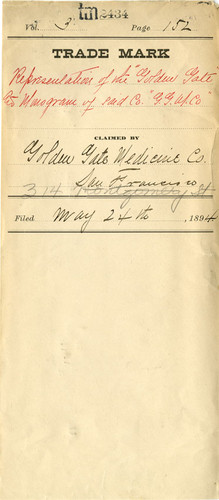 tm 2434
Vol. 3 Page 152
TRADE MARK
Representation of the "Golden Gate"
& Monogram of said Co. "G.G.M.Co"
CLAIMED BY
Golden Gate Medicine Co.
San Francisco
314 Montgomery St
Filed May 24th, 1894